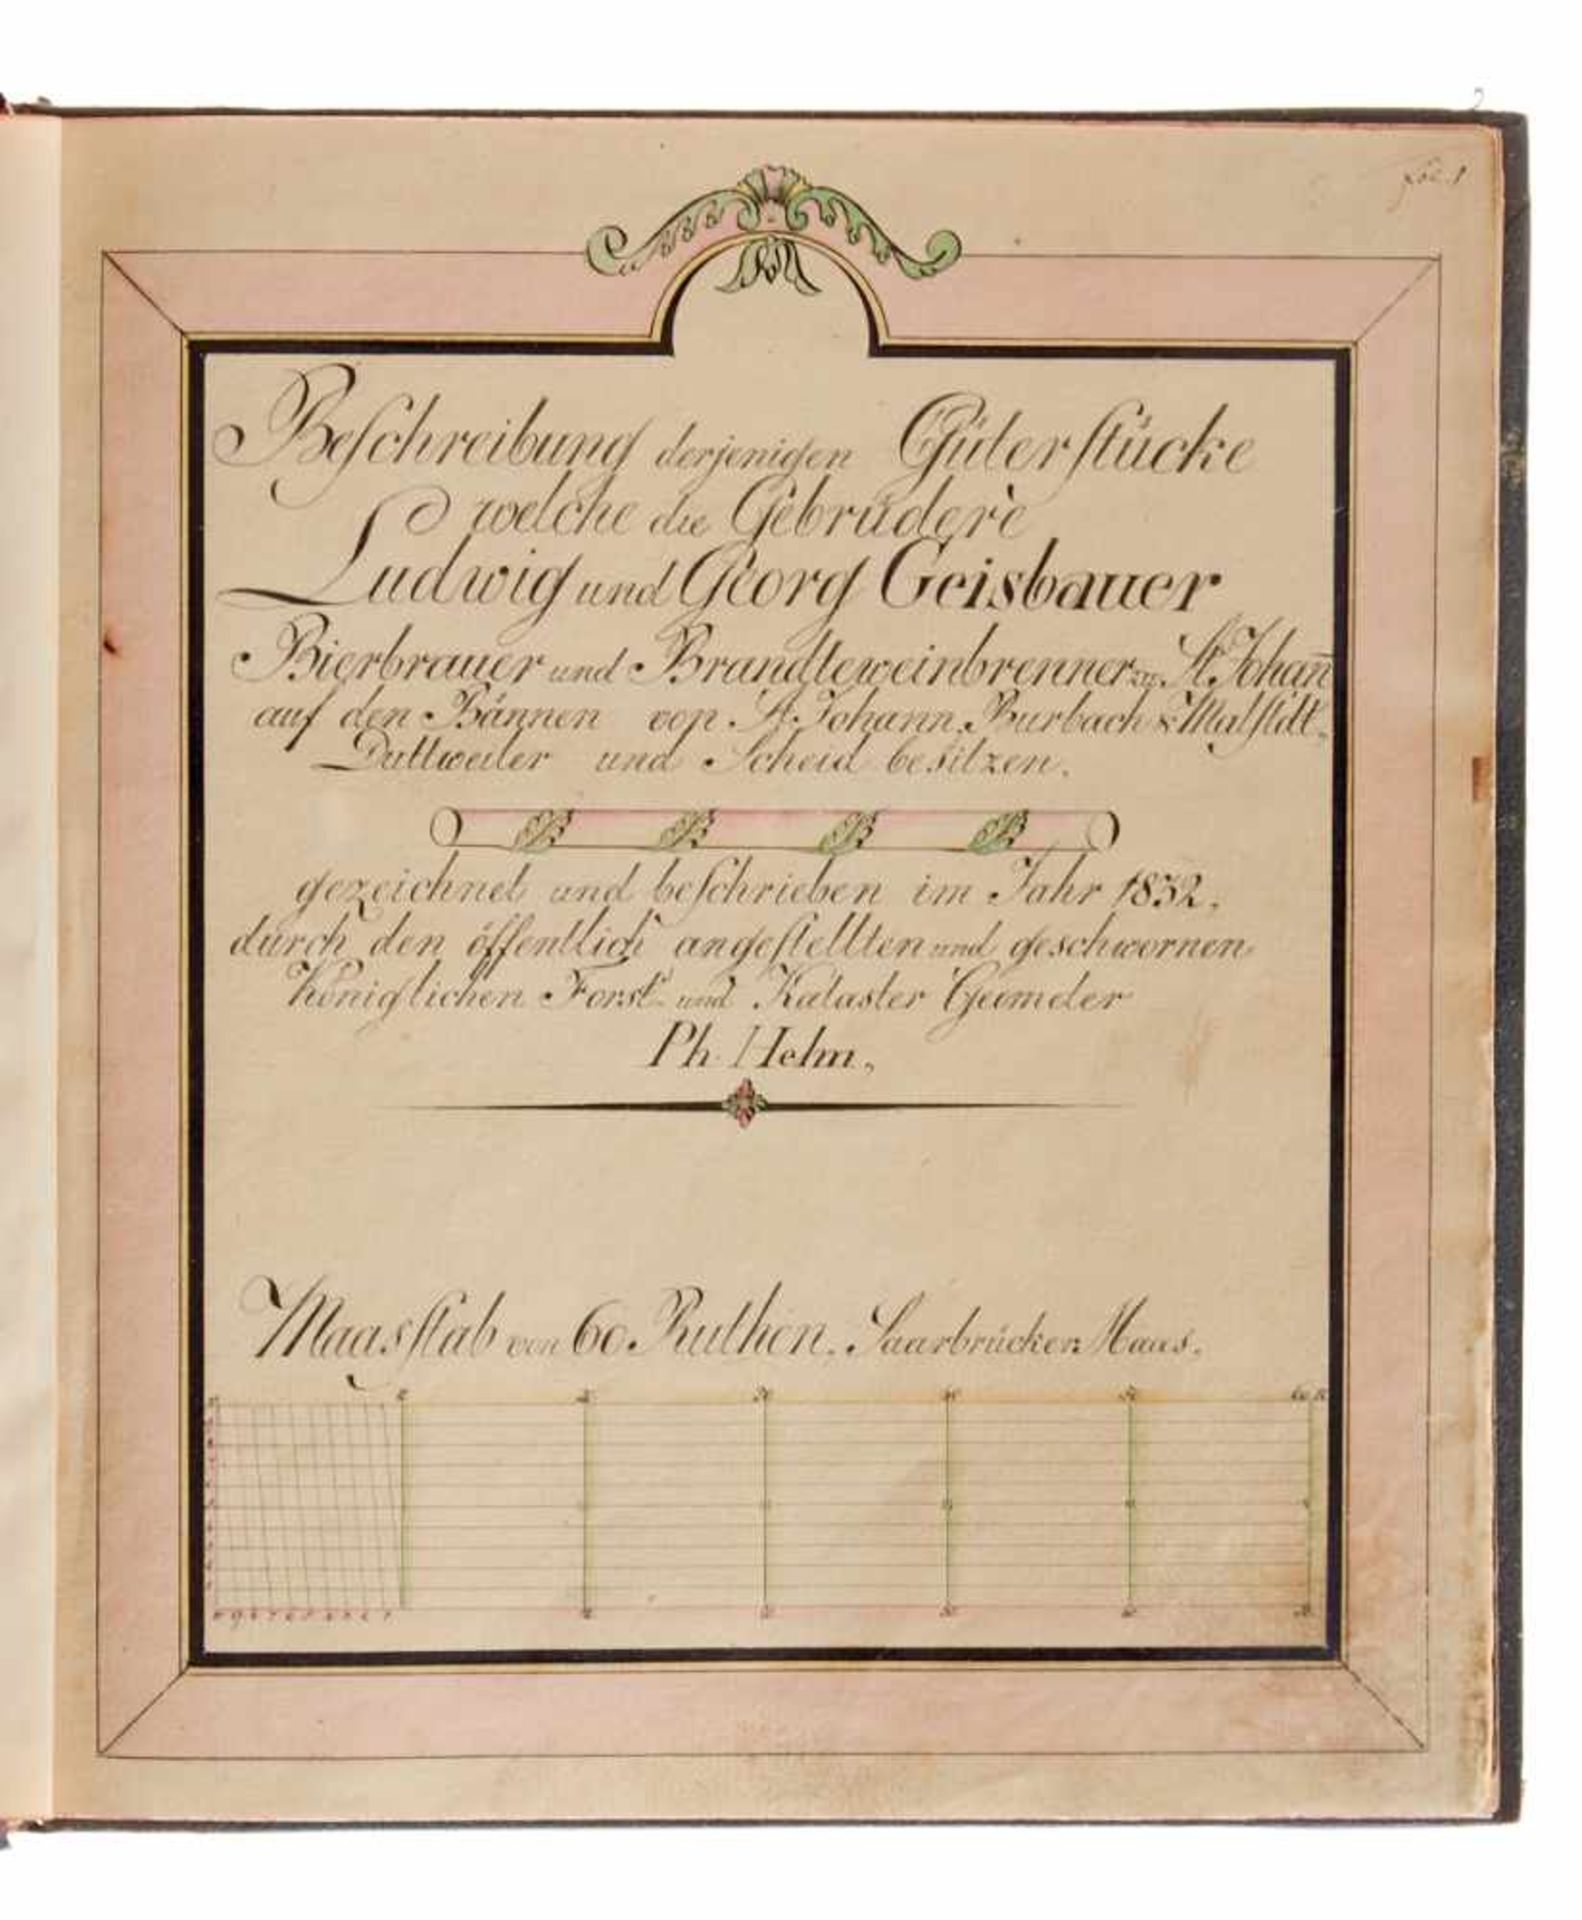 fol. 1
Beschreibung derjenigen Güterstücke
welche die Gebrüdere
Ludwig und Georg Geisbauer
Bierbrauer und Brandteweinbrenner zu St. Johan̄
auf den Bännen von St. Johann, Burbach & Malstdtt,
Duttweiler und Scheid besitzen.
gezeichnet und beschrieben im Jahr 1832.
durch den öffentlich angestellten und geschwornen
Königlichen Forst- und Kataster Geometer
Ph. Helm.
Maasstab von 60 Ruthen. Saarbrücker Maas.